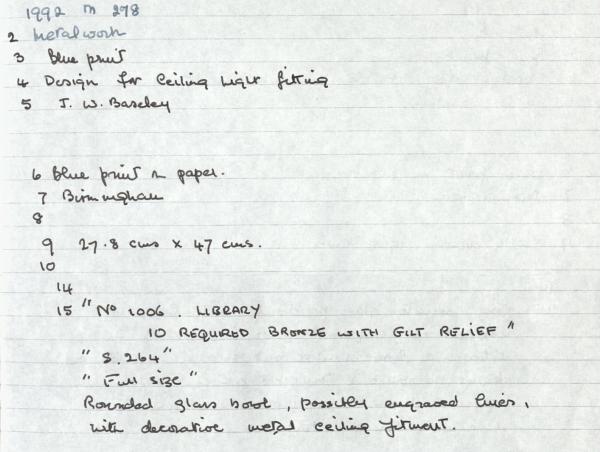 1992 M 278
2 Metalwork
3 Blue print
4 Design for Ceiling Light fitting
5 J. W. Baseley
6 Blue print on paper.
7 Birmingham
8
9 27.8 cms x 47 cms.
10
14
15 "No 1006. LIBRARY
10 REQUIRED BRONZE WITH GILT RELIEF"
"S.264"
"Full size"
Rounded glass bowl, possibly engraved lines,
with decorative metal ceiling fitment.